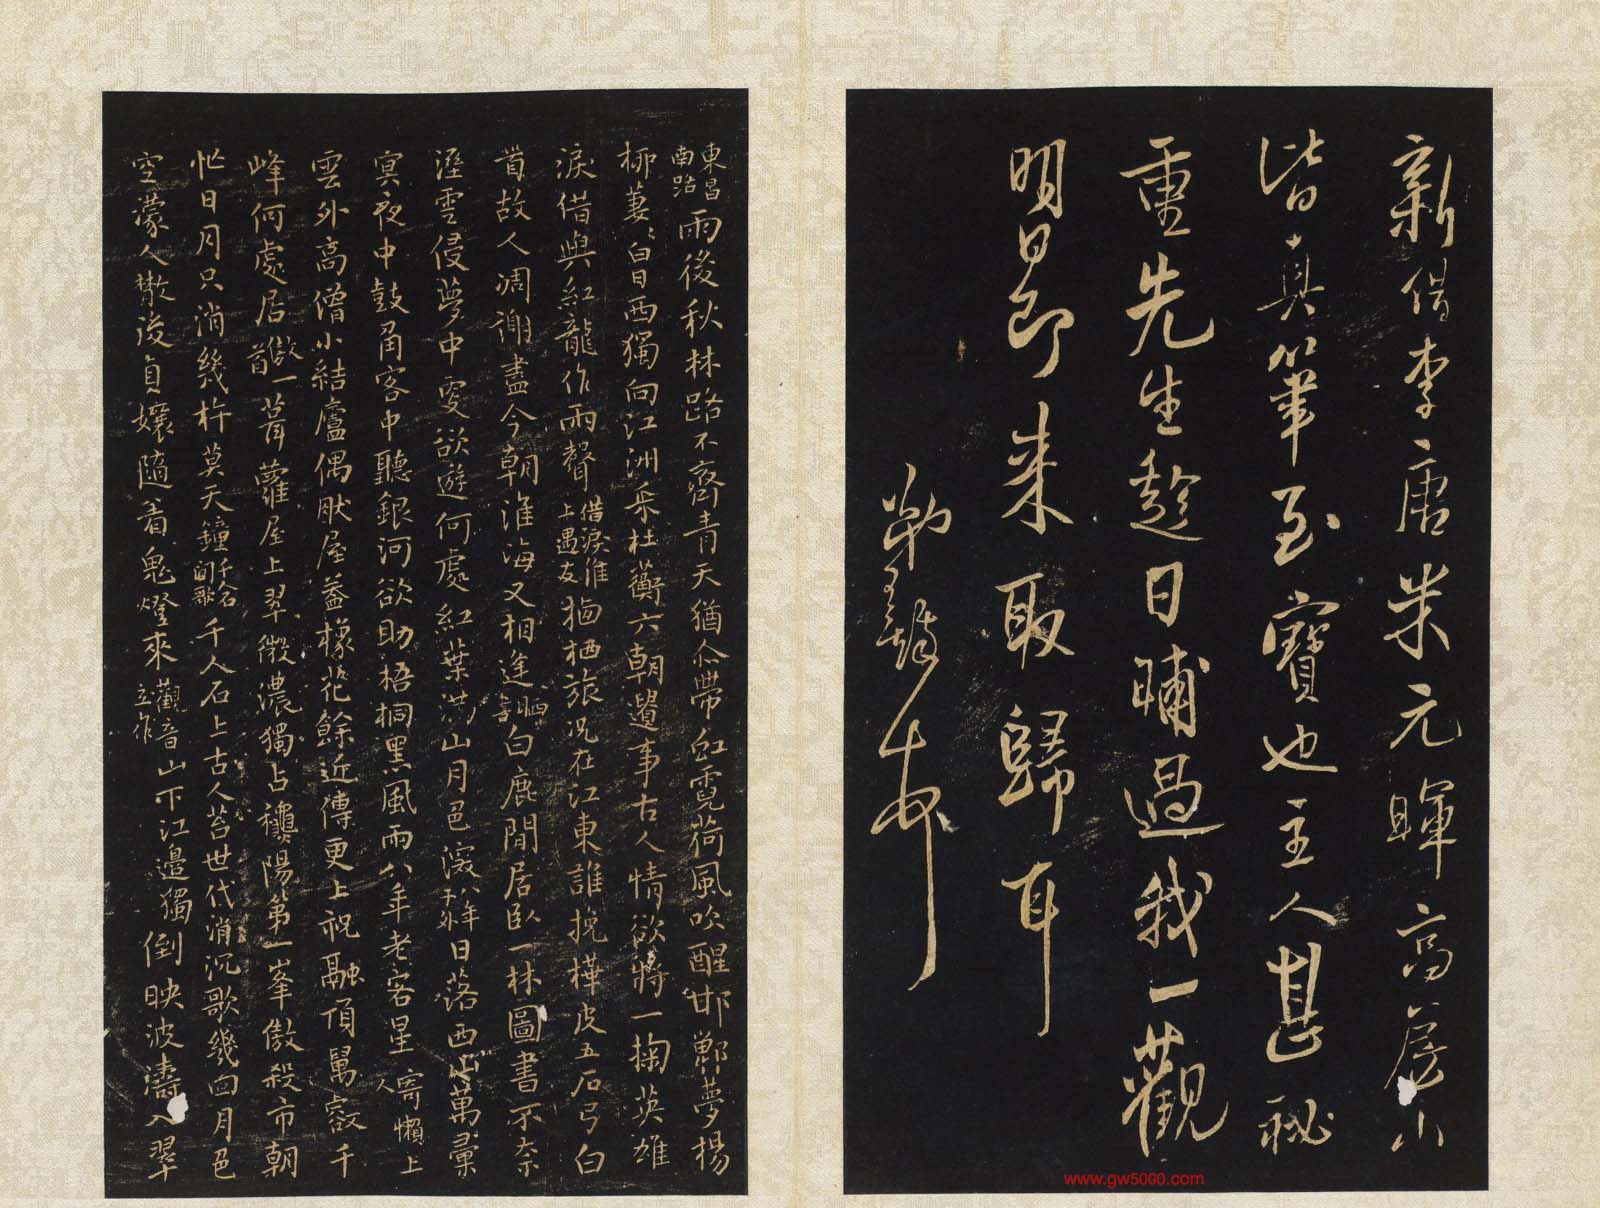 新借李唐米元暉高房山
皆真筆至寶也主人甚秘
重先生趁日晡過我一觀
明日即來取歸耳
東昌南路
雨後秋林路不齊青天猶尒帶虹霓荷風吹醒邯鄲夢楊
柳萋萋白日西獨向江洲采杜蘅六朝遺事古人情欲將一掬英雄
淚借與紅龍作雨聲借淚淮上遇友栖旅況在江東誰挽樺皮五石弓白
首故人凋謝盡今朝淮海又相逢白鹿閒居臥一林圖書不奈
溼雲侵夢中欲遊何處紅葉滿山月色深日落西山萬彙
冥夜中鼓角客中聽銀河欲助梧桐黑風雨八年老客星寄懶上人
雲外高僧小結廬偶肰屋蓋橡花餘近傳更上祝融頂萬壑千
峰何處居一菁蘿屋上翠微濃獨占穠陽第一峯傲殺市朝
忙日月只消幾杵莫天鐘千人石上古人苔世代消沉歌幾回月色
空濛人散後貞孃隨着鬼燈來觀音山下江邊獨倒映波濤入翠
www.gw5000.com